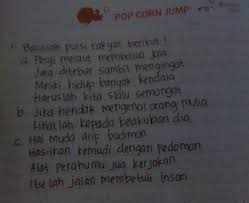 POP CORN JUMP
1. Bacalah puisi rakyat berikut!
a. Pergi melaut membawa jala
Jala ditebar sambil mengingat
Meski hidup banyak kendala
Haruslah kita slalu semangat
b. Jika hendak mengenal orang mulia
Lihatlah kepada kelakuan dia
c. Hai muda arif budiman
Hasilkan kemudi dengan pedoman
Alat perahumu jua kerjakan
Itulah jalan membetuli insan